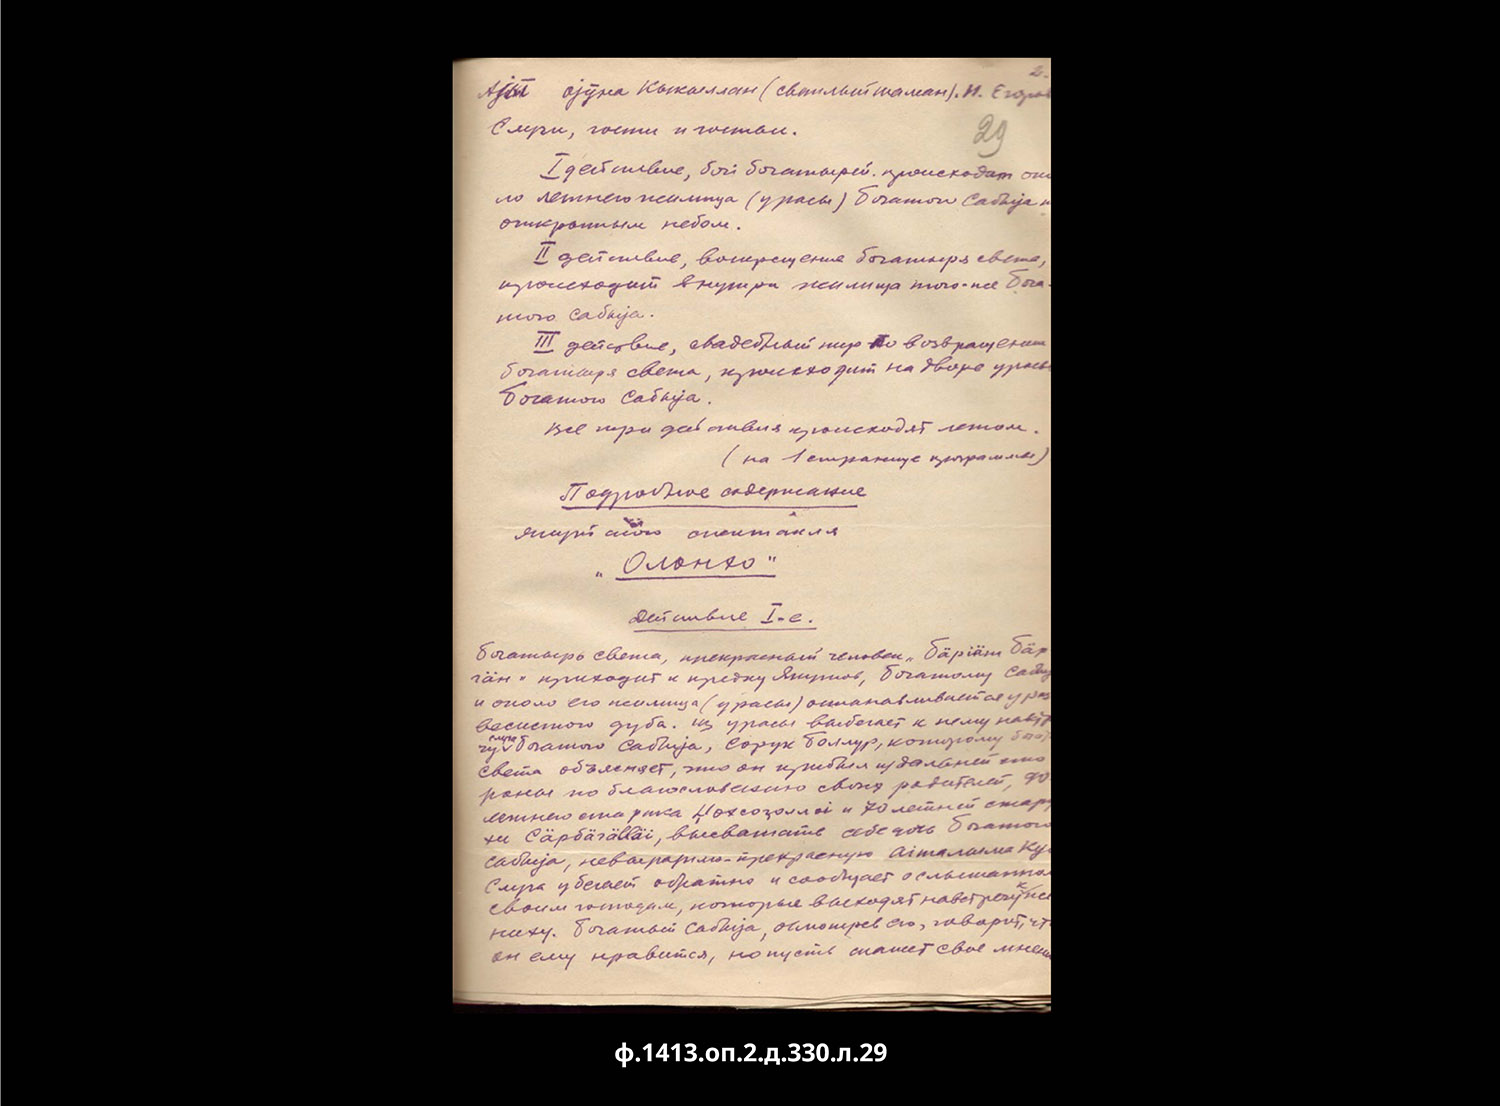 2.
Аjыы оjуна Кыкыллан (светлый шаман). И. Егоров
29
Слуги, гости и гостьи.
I действие, бой богатырей. происходит око
ло летнего жилища (урасы) богатого Сабыjа п
открытым небом.
II действие, воскрещение богатыря света,
происходит внутри жилища того-же бога-
того Сабыjа.
III действие, свадебный пир по возвращении
богатыря света, происходит на дворе урасы
богатого Сабыjа.
Все три действия происходят летом.
(на 1 странице программы)
Подробное содержание
якутского спектакля
„Олонхо"
Действие I-е.
Богатырь света, прекрасный человек „Бäрiäт Бäр
гäн" приходит к предку Якутов, богатому Сабыj
и около его жилища (урасы) останавливается у раз
весистого дуба. Из урасы выбегает к нему навстр
чу слуга богатого Сабыjа, Сорук Боллур, которому бога
света объясняет, что он прибыл из дальней сто
роны по благословению своих родителей, 90
летнего старика и 70 летней стару
хи Сäрбäгäллäi, высватать себе дочь богатого
Сабыjа, невыразимо-прекрасную Аiталыма Ку
Слуга убегает обратно и сообщает о слышанном
своим господам, которые выходят навстречу к же
ниху. Богатый Сабыjа, осмотрев его, говорит, чт
он ему нравится, но пусть скажет свое мнени
ф.1413.оп.2.д.330.л.29